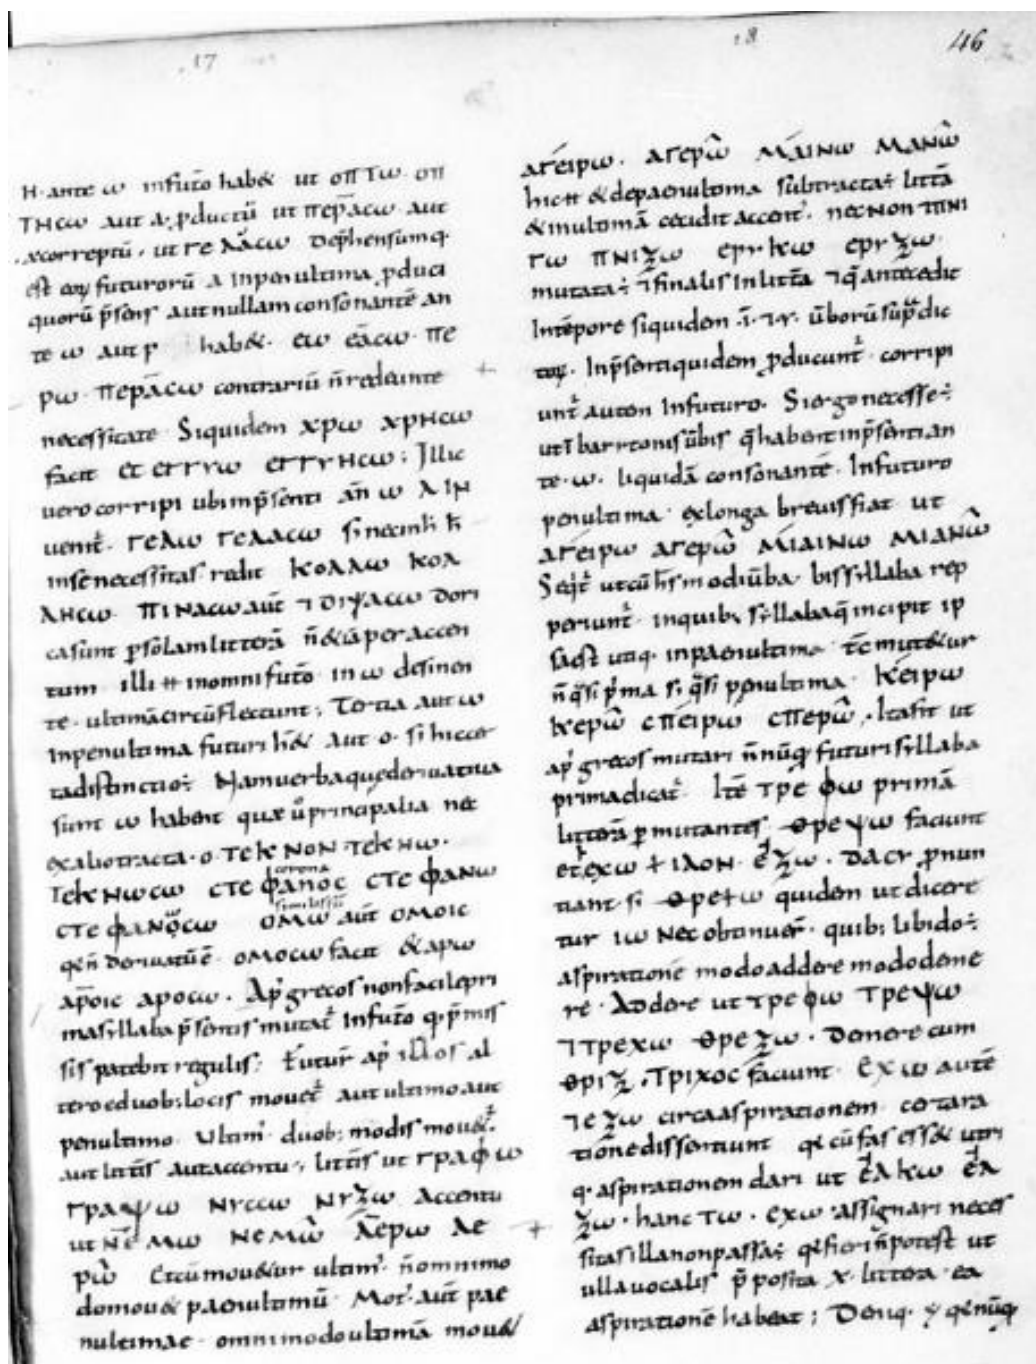 17
18
46
H · ante ω infuto hab& ut οπτω · οπ
τηcω aut a · productū ut περᾱcω aut
correptū · ut γελᾰcω Deprehensumq·
est futurorū a inpenultima produci
quorū p̄sens aut nullam consonantē an
te ω aut ρ hab& · εω εᾱcω · πε
ρω · περᾱcω contrariū n̄ redeunte
necessitate Siquidem χρω χρηcω
facit et εγγυω εγγυηcω ; Illic
uero corripi ubi inp̄senti an̄ ω λ in
uenit̄ · γελω γελαcω si nec inli h̄
insē necessitas redit κολλω κολ
ληcω · πιναcω aut̄ ⁊ διψαcω dori
ca sunt p̄ solam litterā n̄ &iā per accen
tum illi H inomni futo in ω desinen
te · ultimā circūflectunt ; Tertia aut ω
inpenultima futuri h̄& aut o · si h̄ec cer
ta distinctio÷ Nam uerba quę deriuatiua
sunt ω habent quae ū principalia nec
ex alio tracta · o · τεκνον · τεκνω ·
τεκνωcω cτεφανοc cτεφανω
corona
cτεφανο̆cω ομω aut̄ ομοιc
similis sū
qē n̄ deriuatū ē · ομοcω facit & αρω
αροιc αροcω · Ap̄ grecos non facile pri
ma syllaba p̄sentis mutat̄ Infuto q· p̄mis
sis patebit regulis ; Futur̄ ap̄ illos al
tero e duob; locis mouet̄ aut ultimo aut
penultimo · Ultim' duob; modis mouet̄ ·
aut litt̄is aut accentu ; litt̄is ut γραφω
γραψω νυccω νυξω accentu
ut νέμω νεμῶ Δέρω δε
ρῶ Et cū mou&ur ultim' · n̄ omnimo
do mou& paenultimū · Mot' aut̄ pae
nultimae · omnimodo ultimā mou&
αγείρω · αγερῶ μάινω μανῶ
hic H & de paenultima subtracta÷ litt̄a
& in ultimā cecidit accent' · nec non πνι
γω πνιξω ερυκω ερυξω ·
mutata÷ ī finalis In litt̄a ⁊ q̄ antecedit
In tēpore siquidem · ī · ⁊ · υ · ūborū sup̄dic
Inp̄senti quidem p̄ducunt̄ · corripi
unt̄ autem Infuturo · Si ergo necesse÷
ut ī barytonis ūbis q̄ habent inp̄senti an
te · ω · liquidā consonantē · Infuturo
penultima · ex longa breuis fiat ut
αγείρω αγερῶ μιάινω μιανῶ
Seq̄t̄ ut cū h̄s modi ūba · bissyllaba rep
periunt̄ · inquib; syllaba q̄ incipit ip
sa est utiq· in paenultima · tc̄ mut&ur
n̄ q̄si p̄ma · s; q̄si penultima · κείρω
κερῶ cπείρω cπερῶ · Ita fit ut
ap̄ grecos mutari n̄ nūq· futuri syllaba
prima dicat̄ · Itē τρεφω primā
litterā p̄mutantes θρεψω faciunt
et ἐχω ἕξω · Dacy p̄nun
tiant si · θρεψω quidem ut dicere
tur ιω Nec obtinuer̄ · quib; libido÷
aspirationē modo addere modo deme
re · Addere ut τρεφω τρεψω
⁊ τρεχω θρεξω · Demere cum
θριξ · τριχοc faciunt · εχω autē
⁊ εξω circa aspirationem certa ra
tione dissentiunt qē cū fas ess& utri
q· aspirationem dari ut ἕλκω ἕλ
ξω · hanc τω · εχω · assignari neces
sitas illa non passa÷ qē fieri n̄ potest ut
ulla uocalis p̄posita χ · littera · ea
aspirationē habeat ; Deniq· qē nūq·